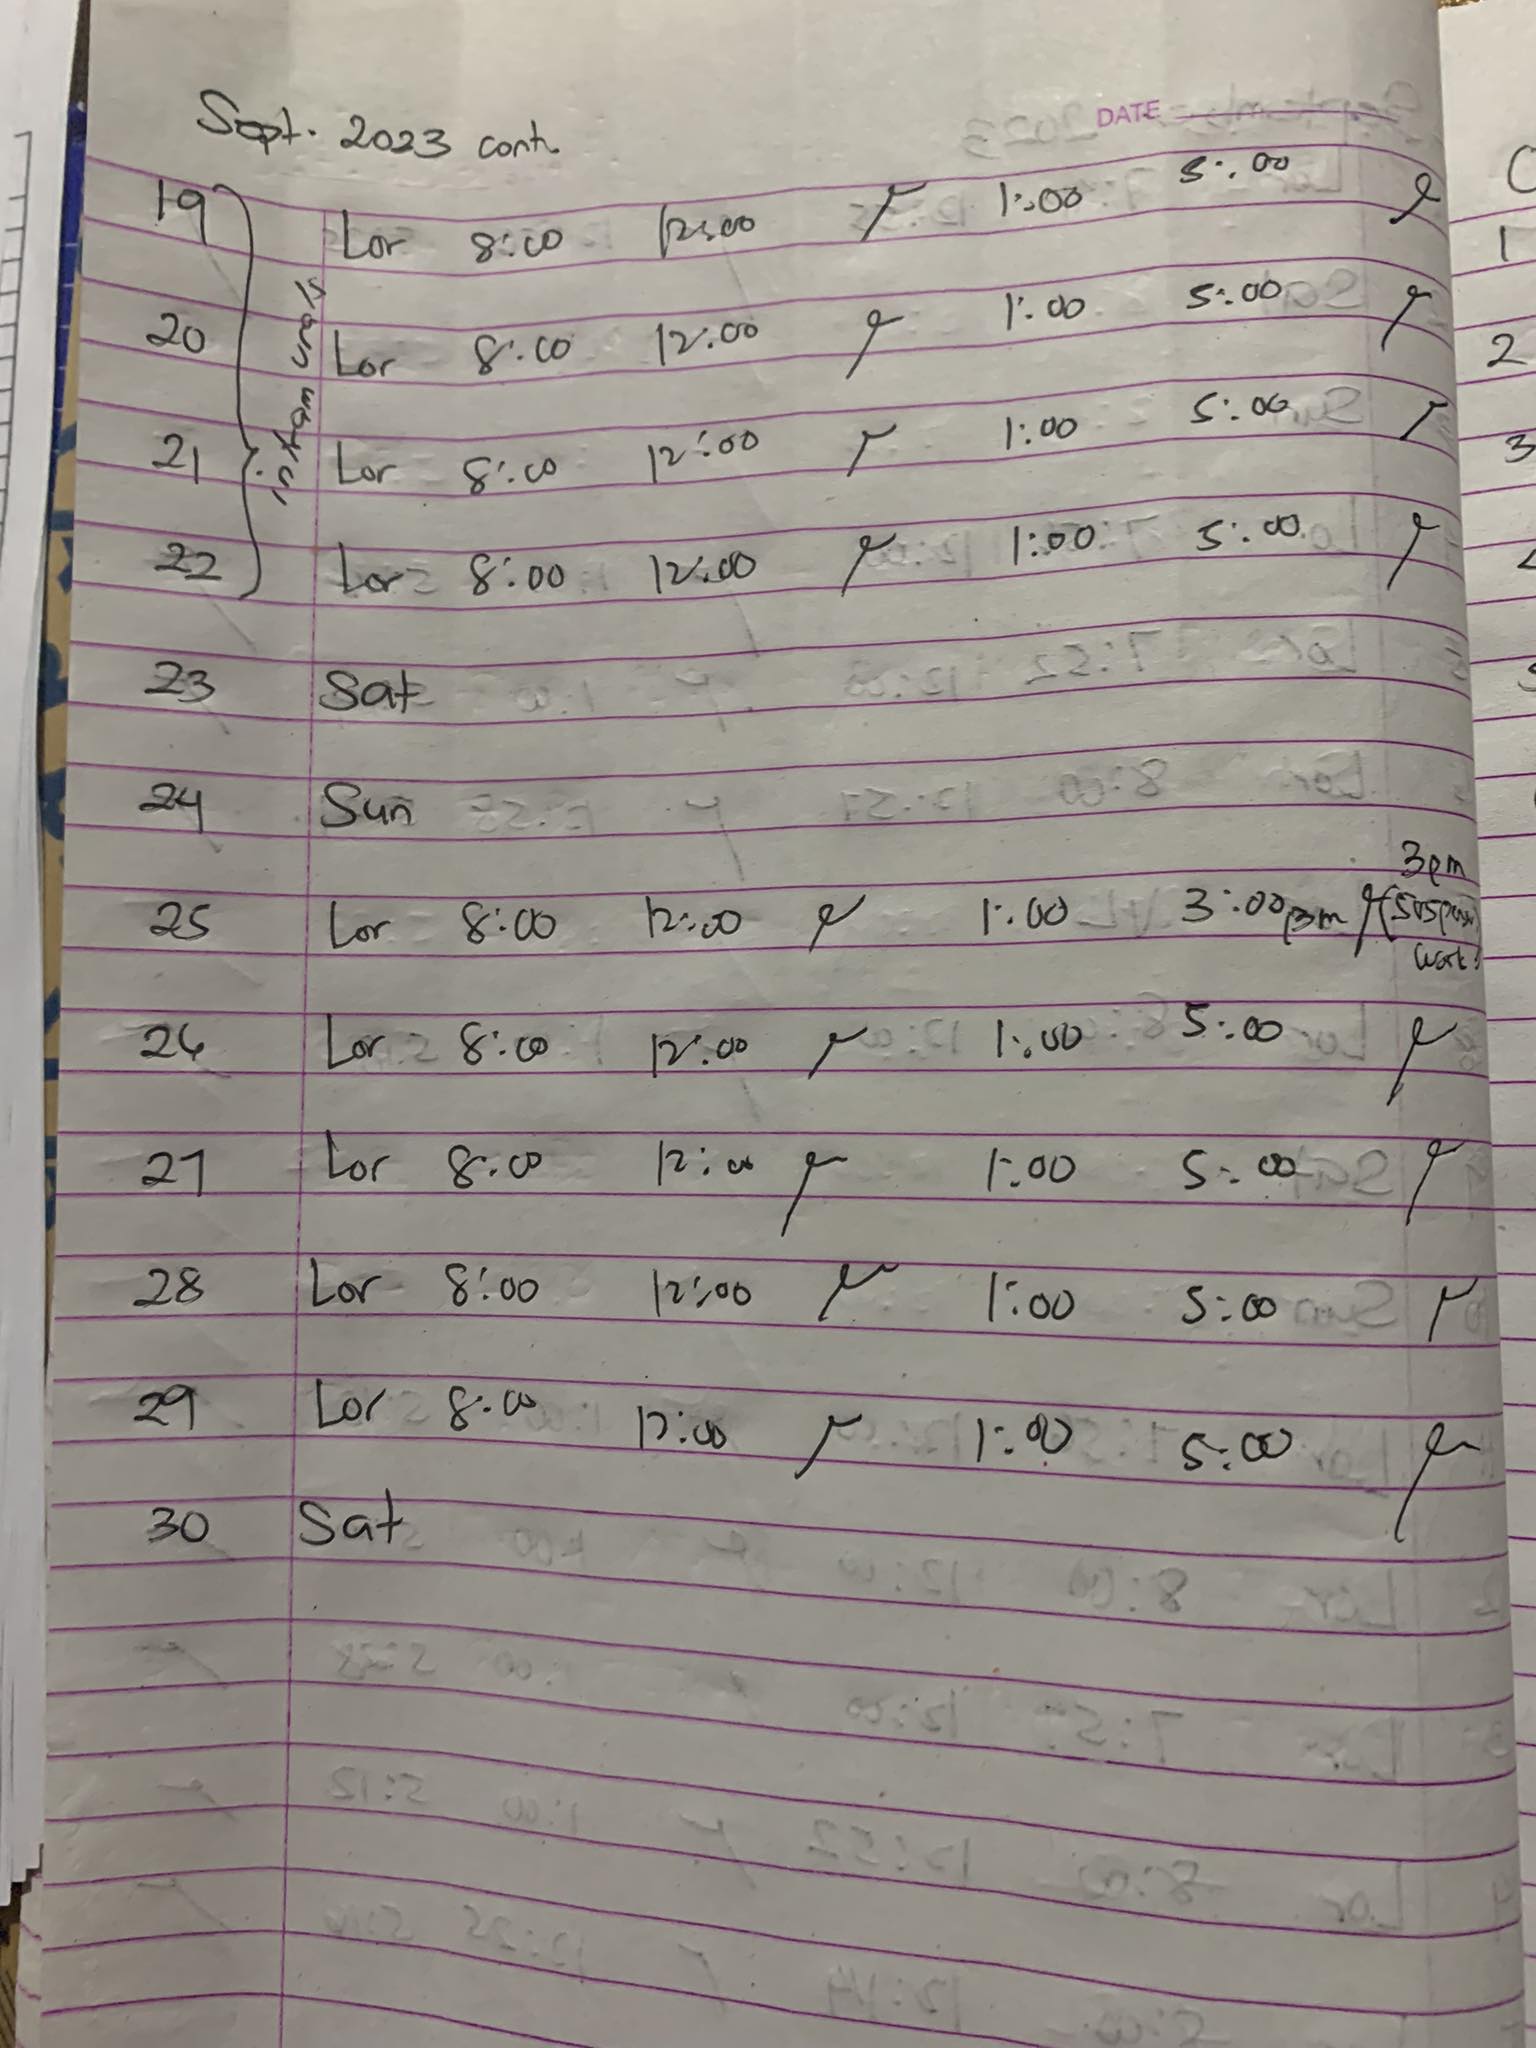 DATE
Sept. 2023 cont.
19 Lor 8:00 12:00 1:00 5:00
20 Lor 8:00 12:00 1:00 5:00
intramurals
21 Lor 8:00 12:00 1:00 5:00
22 Lor 8:00 12:00 1:00 5:00
23 Sat
24 Sun
25 Lor 8:00 12:00 1:00 3:00pm (3pm
work)
26 Lor 8:00 12:00 1:00 5:00
27 Lor 8:00 12:00 1:00 5:00
28 Lor 8:00 12:00 1:00 5:00
29 Lor 8:00 12:00 1:00 5:00
30 Sat
1
2
3